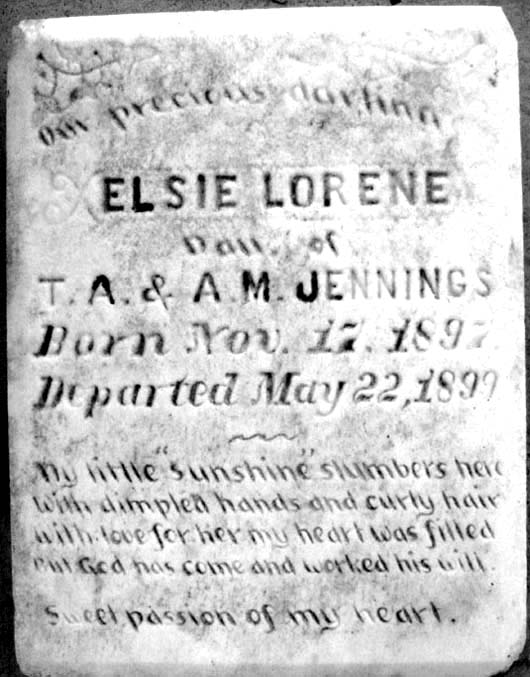 Our precious darling
ELSIE LORENE
Dau. of
T. A. & A. M. JENNINGS
Born Nov. 17, 1897.
Departed May 22, 1899
My little "Sunshine" slumbers here
With dimpled hands and curly hair
with love for her my heart was filled
But God has come and worked his will.
Sweet passion of my heart.